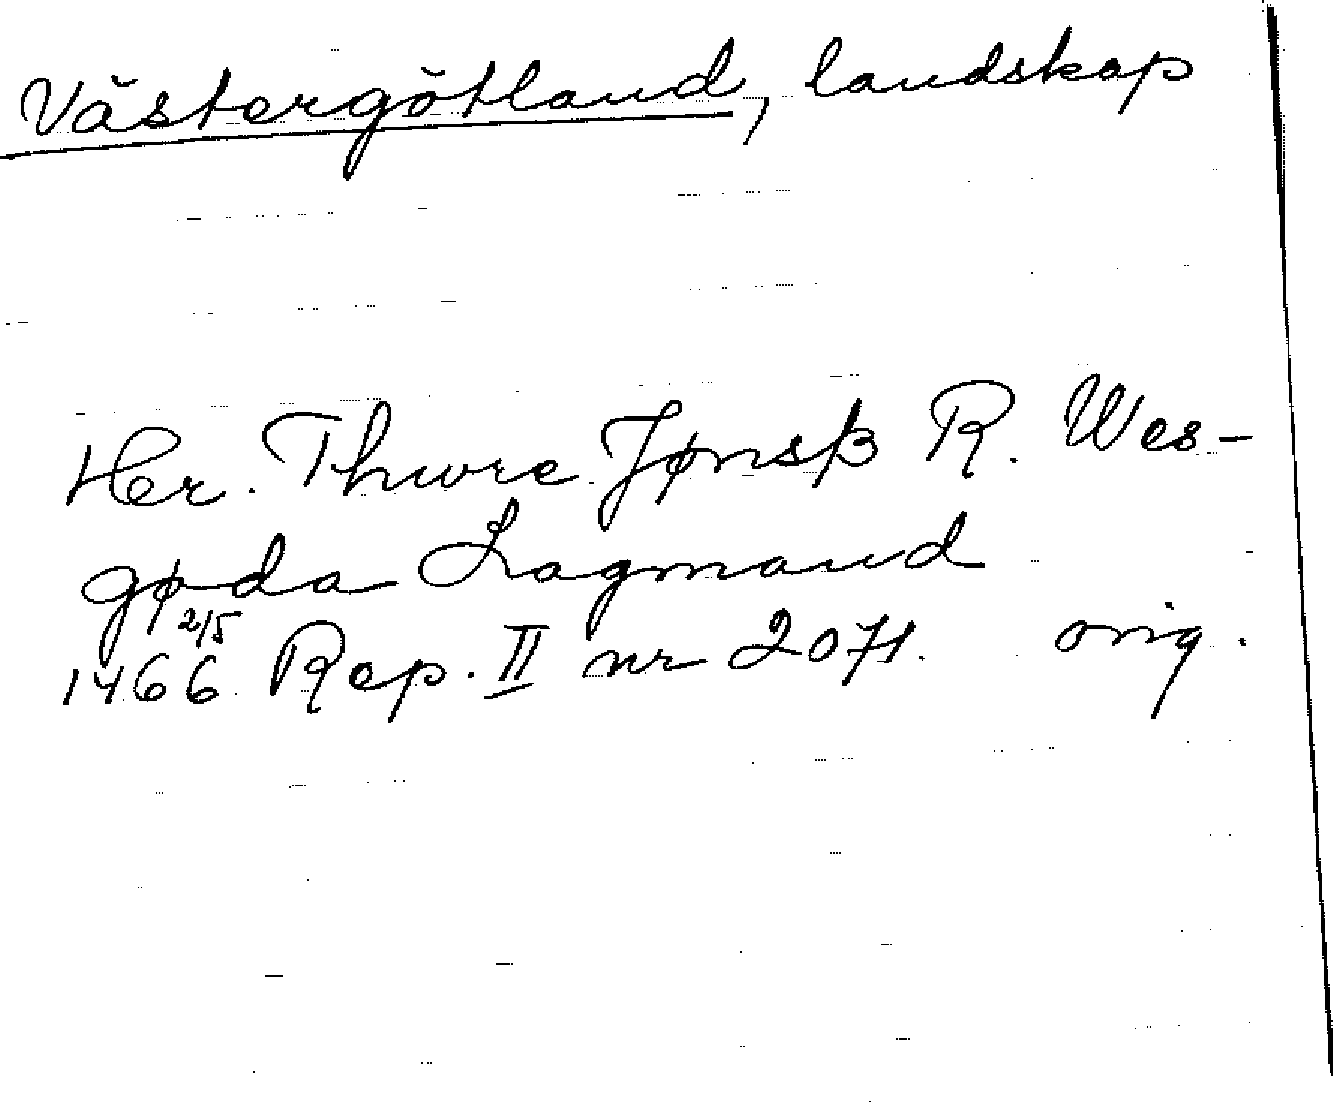 Västergötland, landskap
Her. Thure Jønsß R. Wes-
gøda Lagmand
2/5
1466 Rep. II nr 2071. orig.